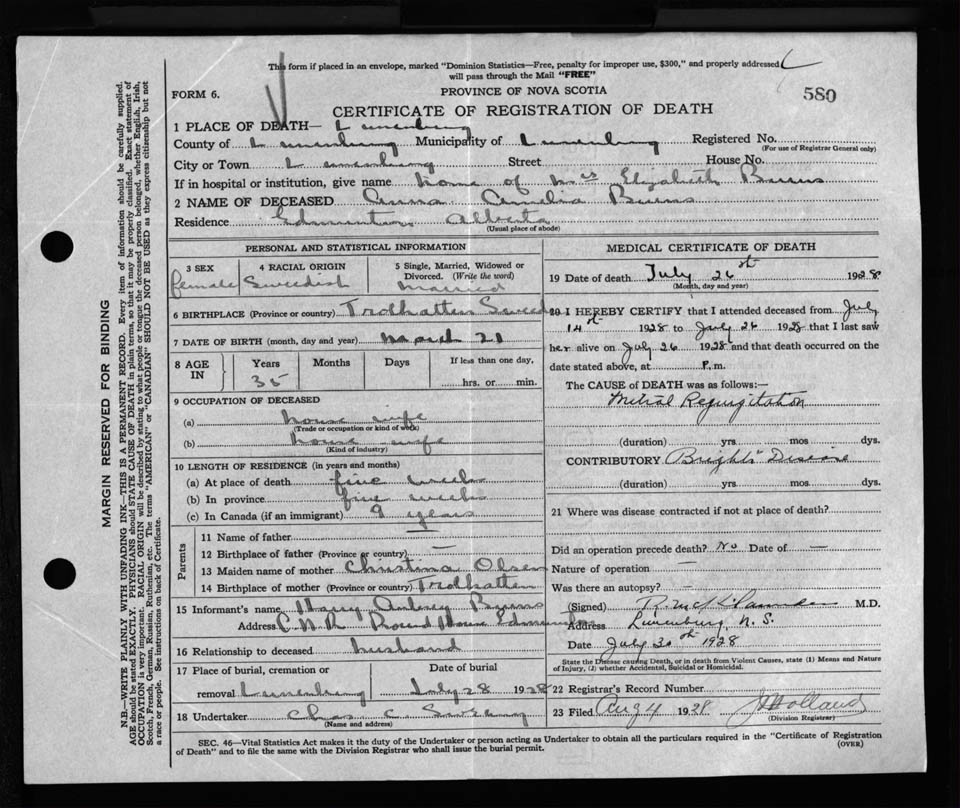 This form if placed in an envelope, marked "Dominion Statistics—Free, penalty for improper use, $300," and properly addressed
will pass through the Mail "FREE"
FORM 6.
PROVINCE OF NOVA SCOTIA
580
CERTIFICATE OF REGISTRATION OF DEATH
1 PLACE OF DEATH— Lunenburg
County of Lunenburg Municipality of Lunenburg Registered No.
(For use of Registrar General only)
City or Town Lunenburg Street House No.
If in hospital or institution, give name home of Mrs Elizabeth Burns
2 NAME OF DECEASED Anna Amelia Burns
Residence Edmunton Alberta
(Usual place of abode)
PERSONAL AND STATISTICAL INFORMATION
3 SEX
female
4 RACIAL ORIGIN
Sweedish
5 Single, Married, Widowed or
Divorced. (Write the word)
married
6 BIRTHPLACE (Province or country) Trolhatten Sweden
7 DATE OF BIRTH (month, day and year) March 21
8 AGE IN
Years 35
Months
Days
If less than one day,
hrs. or min.
9 OCCUPATION OF DECEASED
(a) house wife
(Trade or occupation or kind of work)
(b) house wife
(Kind of industry)
10 LENGTH OF RESIDENCE (in years and months)
(a) At place of death five weeks
(b) In province five weeks
(c) In Canada (if an immigrant) 9 years
Parents
11 Name of father —
12 Birthplace of father (Province or country) —
13 Maiden name of mother Christina Olsen
14 Birthplace of mother (Province or country) Trolhatten
15 Informant's name Harry Aubrey Burns
Address C.N.R. Round House Edmunton
16 Relationship to deceased husband
17 Place of burial, cremation or
removal Lunenburg
Date of burial
July 28 1928
18 Undertaker Chas C
(Name and address)
MEDICAL CERTIFICATE OF DEATH
19 Date of death July 26st 1928
(Month, day and year)
20 I HEREBY CERTIFY that I attended deceased from July
14st 1928 to July 26 1928 that I last saw
her alive on July 26 1928 and that death occurred on the
date stated above, at P.m.
The CAUSE of DEATH was as follows:—
Mitral Regurgitation
(duration) yrs. mos dys.
CONTRIBUTORY Bright's Disease
(duration) yrs. mos. dys.
21 Where was disease contracted if not at place of death?
Did an operation precede death? No Date of —
Nature of operation —
Was there an autopsy? —
(Signed) M.D.
Address Lunenburg, N.S.
Date July 30th 1928
State the Disease causing Death, or in death from Violent Causes, state (1) Means and Nature
of Injury, (2) whether Accidental, Suicidal or Homicidal.
22 Registrar's Record Number
23 Filed Aug 4 1928 J Holland
(Division Registrar)
SEC. 46—Vital Statistics Act makes it the duty of the Undertaker or person acting as Undertaker to obtain all the particulars required in the "Certificate of Registration
of Death" and to file the same with the Division Registrar who shall issue the burial permit.
(OVER)
MARGIN RESERVED FOR BINDING
N.B.—WRITE PLAINLY WITH UNFADING INK—THIS IS A PERMANENT RECORD. Every item of information should be carefully supplied.
AGE should be stated EXACTLY. PHYSICIANS should STATE CAUSE OF DEATH in plain terms, so that it may be properly classified. Exact statement of
OCCUPATION is very important. RACIAL ORIGIN will be described by stating to what people or tongue the deceased person belonged, whether English, Irish,
Scotch, French, German, Russian, Ruthenian, etc. The terms "AMERICAN" or "CANADIAN" SHOULD NOT BE USED as they express citizenship but not
a race or people. See instructions on back of Certificate.